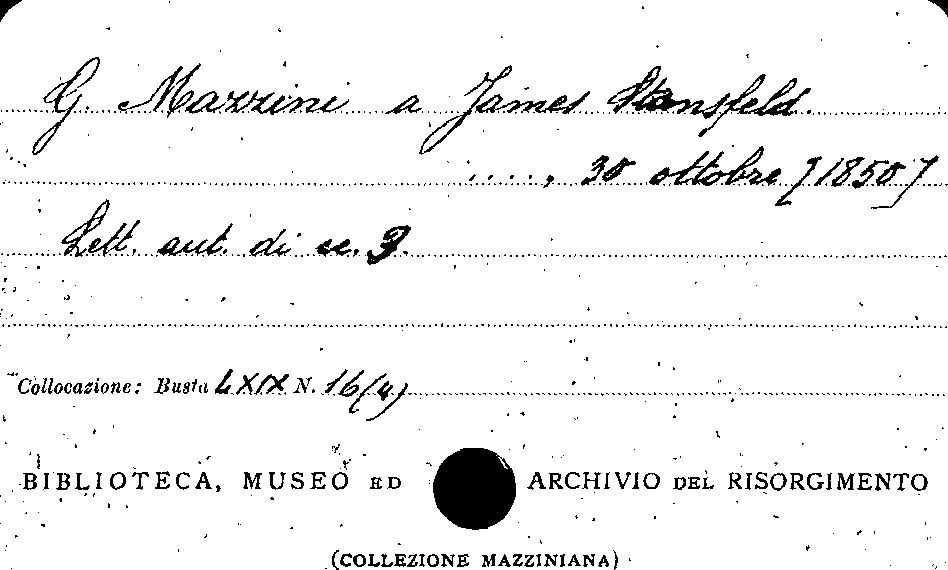 G. Mazzini a James Stansfeld.
...., 30 ottobre [1850]
Lett. aut. di cc. 3.
Collocazione: Busta LXIX N. 16(4)
BIBLIOTECA, MUSEO ED ARCHIVIO DEL RISORGIMENTO
(COLLEZIONE MAZZINIANA)